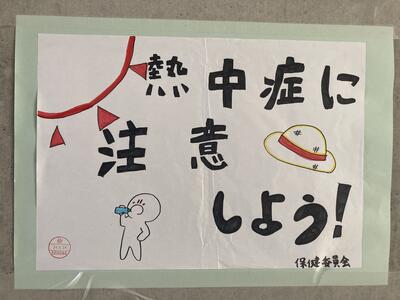 熱中症に
注意
しよう!
保健委員会